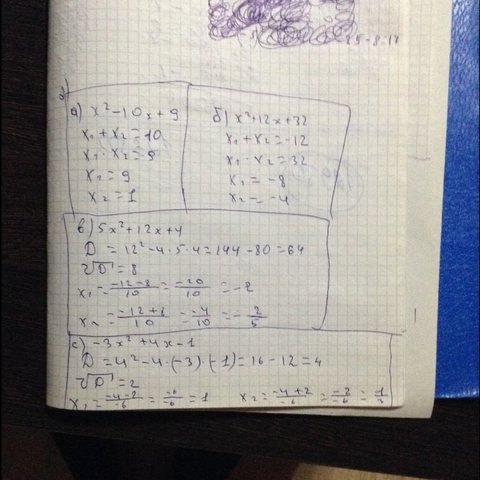 а) x²-10x+9
x₁+x₂=10
x₁·x₂=9
x₁=9
x₂=1
б) x²+12x+32
x₁+x₂=-12
x₁·x₂=32
x₁=-8
x₂=-4
в) 5x²+12x+4
D=12²-4·5·4=144-80=64
√D=8
x₁=(-12-8)/10=(-20)/10=-2
x₂=(-12+8)/10=-4/10=-2/5
с) -3x²+4x-1
D=4²-4·(-3)·(-1)=16-12=4
√D=2
x₁=(-4-2)/-6=(-6)/-6=1 x₂=(-4+2)/-6=(-2)/-6=1/3